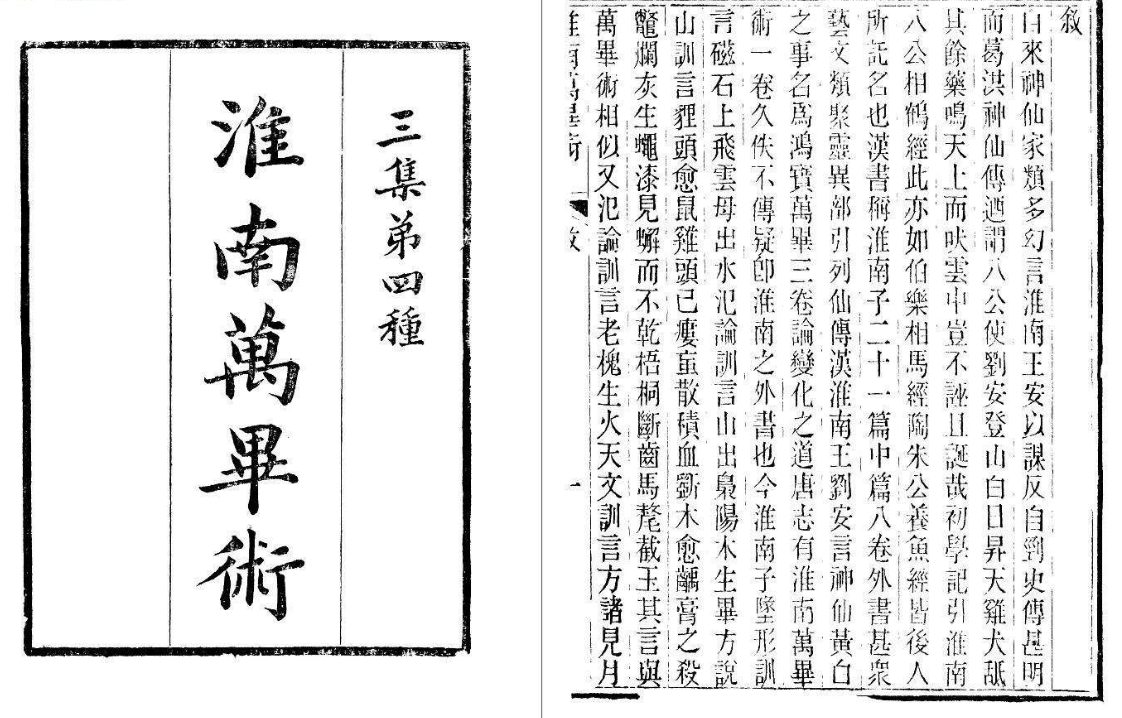 三集第四種
淮南萬畢術
敘
自來神仙家類多幻言淮南王安以謀反自剄史傳甚明
而葛洪神仙傳迺謂八公使劉安登山白日昇天雞犬舐
其餘藥鳴天上而吠雲中豈不誣且誕哉初學記引淮南
八公相鶴經此亦如伯樂相馬經陶朱公養魚經皆後人
所託名也漢書稱淮南子二十一篇中篇八卷外書甚衆
藝文類聚靈異部引列仙傳漢淮南王劉安言神仙黃白
之事名爲鴻寶萬畢三卷論變化之道唐志有淮南萬畢
術一卷久佚不傳疑卽淮南之外書也今淮南子墜形訓
言磁石上飛雲母出水氾論訓言山出梟陽木生畢方說
山訓言貍頭愈鼠雞頭已瘻䖟散積血斲木愈齲膏之殺
鼈爛灰生蠅漆見蠏而不乾梧桐斷齒馬氂截玉其言與
萬畢術相似又氾論訓言老槐生火天文訓言方諸見月
淮南萬畢術 敘 一